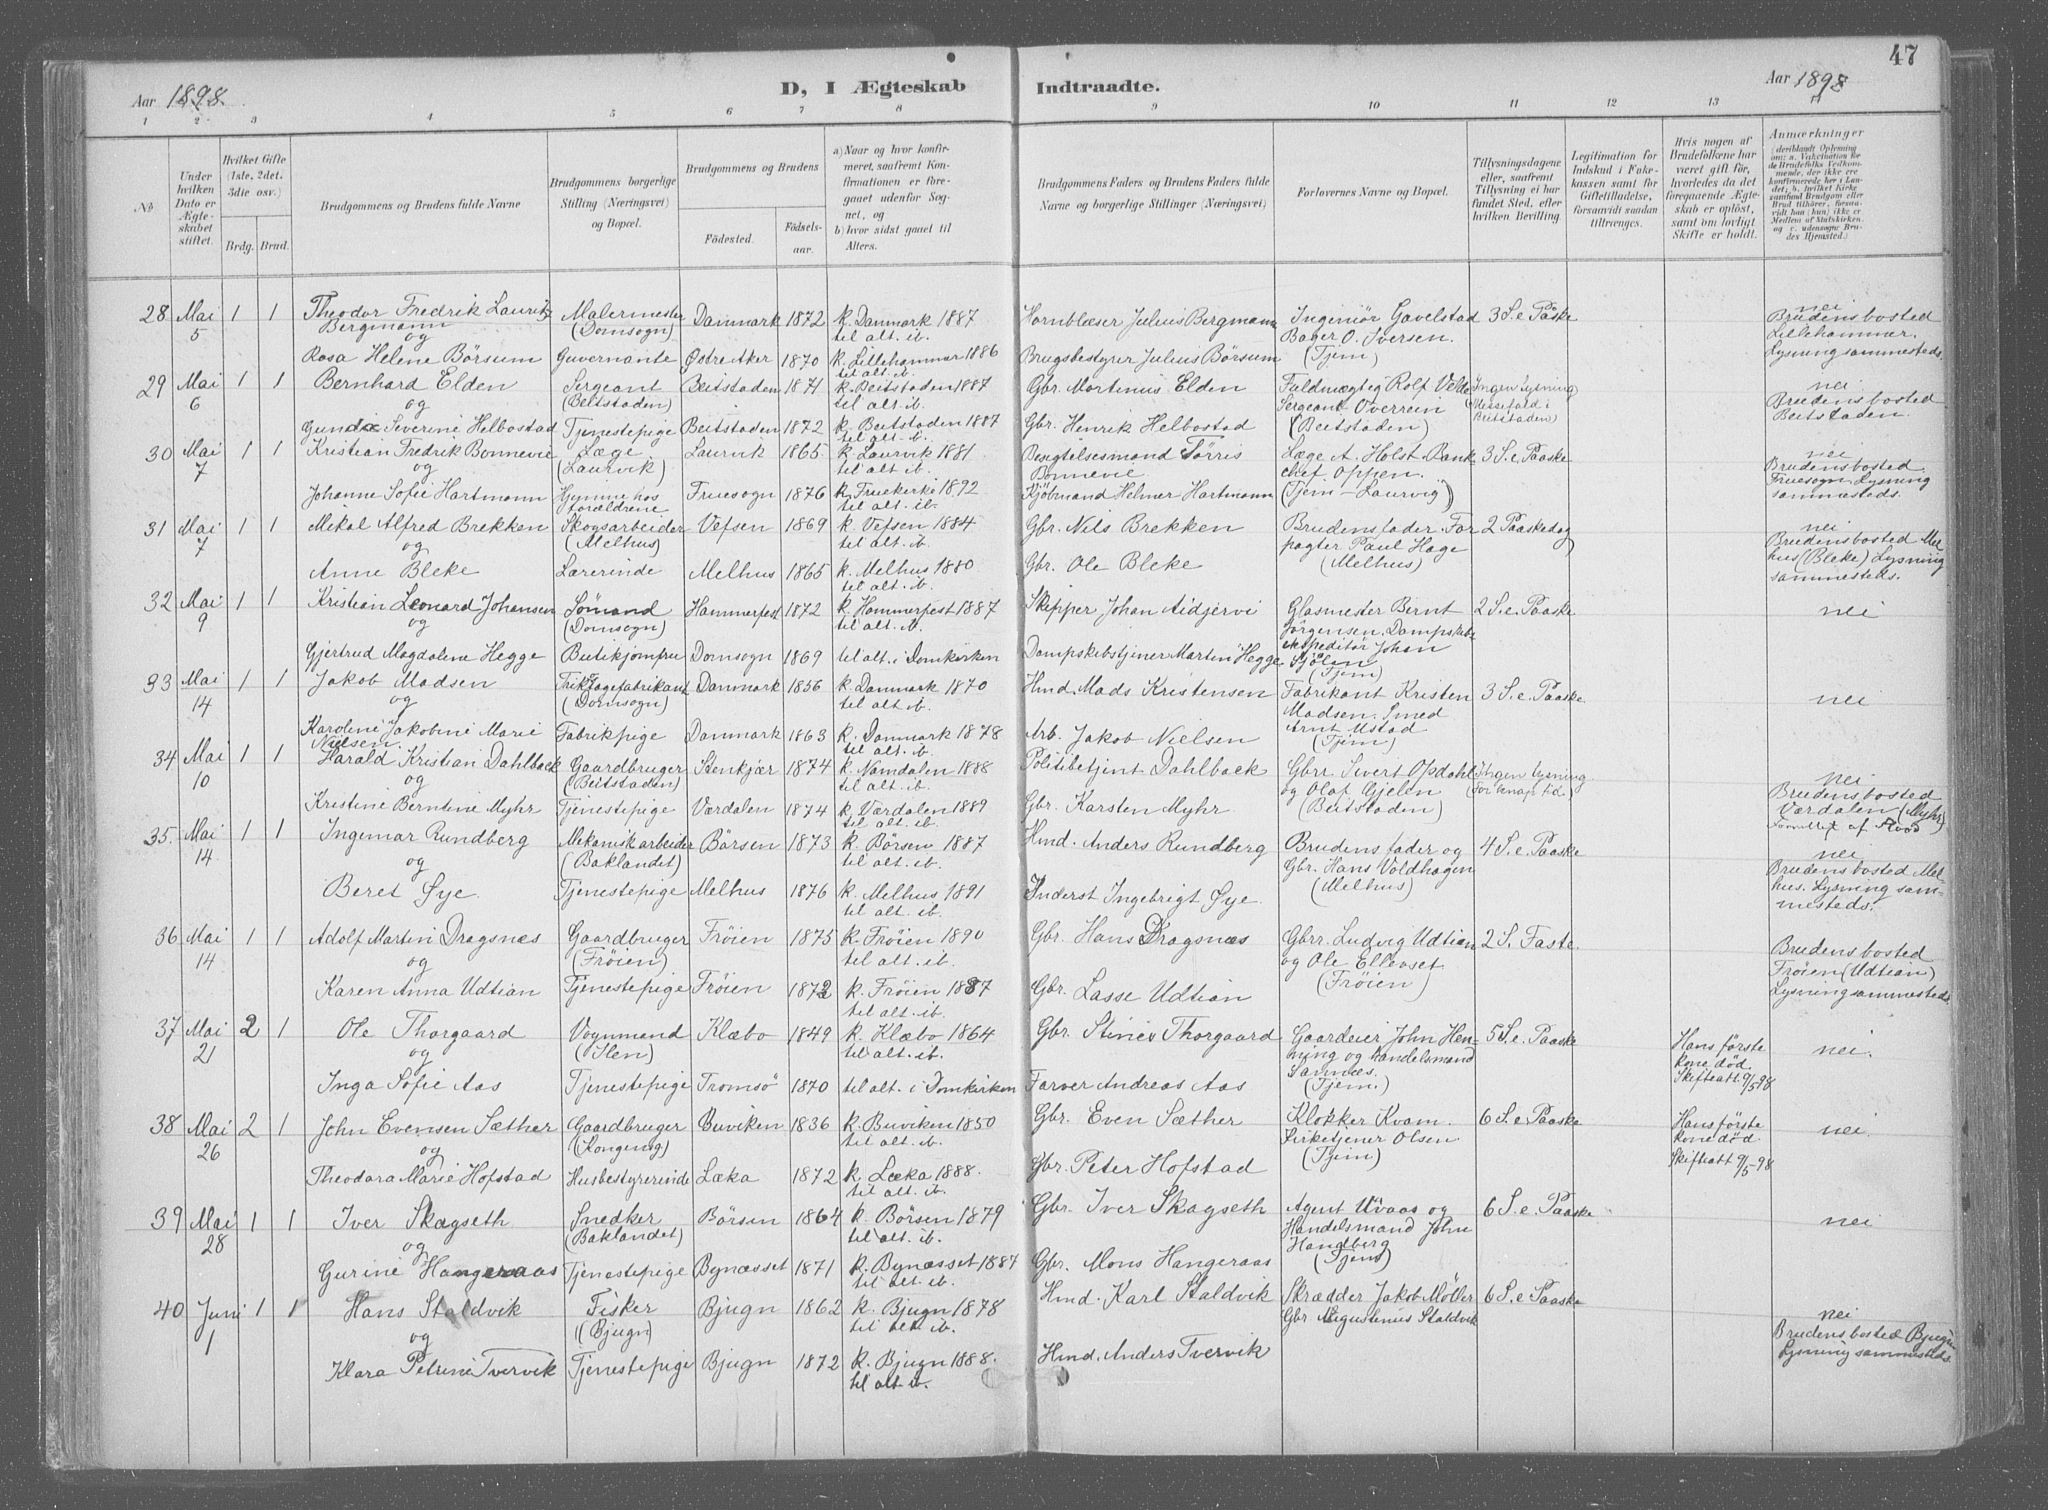 47
Aar 1898.
D, I Ægteskab Indtraadte.
Aar 1898
1 2 3 4 5 6 7 8 9 10 11 12 13
No
Under hvilken Dato er Ægteskabet stiftet.
Hvilket Gifte (1ste, 2det, 3die osv.)
Brdg. Brud.
Brudgommens og Brudens fulde Navne
Brudgommens borgerlige Stilling (Næringsvei) og Bopæl.
Brudgommens og Brudens
Fødested. Fødselsaar.
a) Naar og hvor konfirmeret, saafremt Konfirmationen er foregaaet udenfor Sognet, og
b) hvor sidst gaaet til Alters.
Brudgommens Faders og Brudens Faders fulde Navne og borgerlige Stillinger (Næringsvei)
Forlovernes Navne og Bopæl.
Tillysningsdagene eller, saafremt Tillysning ei har fundet Sted, efter hvilken Bevilling
Legitimation for Indskud i Enkekassen samt for Giftetilladelse, forsaavidt saadan tiltrænges.
Hvis nogen af Brudefolkene har været gift før, hvorledes da det foregaaende Ægteskab er opløst, samt om lovligt Skifte er holdt.
Anmærkninger
28 Mai 5 1 1 Theodor Fredrik Lauritz Bergmann Malermester (Domsogn) Danmark 1872 k. Danmark 1887 til alt. ib. Hornblæser Julius Bergmann Ingeniør Gavelstad Bager O. Iversen. (Tjem) 3 S. e. Påske nei Brudens bosted Lillehammer. Lysning sammesteds.
og
Rosa Helene Börsum Guvernante Østre Aker 1870 k. Lillehammer 1886 til alt. ib. Brugsbestyrer Julius Börsum
29 Mai 6 1 1 Bernhard Elden Sergeant (Beitstaden) Beitstaden 1871 k. Beitstaden 1887 til alt. ib. Gbr. Mortinus Elden Fuldmægtig Rolf Velde Sergeant Overrein (Beitstaden) Ingen Lysning (Messefald i Beitstaden) nei Brudens bosted Beitstaden.
og
Severine Helbostad Tjenestepige Beitstaden 1872 k. Beitstaden 1887 til alt. ib. Gbr. Henrik Helbostad
30 Mai 7 1 1 Kristian Fredrik Bonnevie Læge (Laurvik) Laurvik 1865 k. Laurvik 1881 til alt. ib. Tørris Bonnevie Læge A. Holst. Bankchef Oppen. (Tjem - Laurvig) 3 S. e. Paaske nei Brudens bosted Fruesogn Lysning sammesteds.
og
Johanne Sofie Hartmann Hjemme hos forældrene Fruesogn 1876 k. Fruekirke 1892 til alt. ib. Kjöbmand Helmer Hartmann
31 Mai 7 1 1 Mikal Alfred Brekken Skogsarbeider (Melhus) Vefsen 1869 k. Vefsen 1884 til alt. ib. Gbr. Nils Brekken Brudens fader. Forpagter Paul Hage (Melhus) 2 Paaskedag nei Brudens bosted Melhus (Bleke) Lysning sammesteds.
og
Anne Bleke Lærerinde Melhus 1865 k. Melhus 1880 til alt. ib. Gbr. Ole Bleke
32 Mai 9 1 1 Kristian Leonard Johansen Sömand (Domsogn) Hammerfest 1872 k. Hammerfest 1887 til alt. ib. Skipper Johan Aidjervi Glasmester Bernt Jörgensen. Dampskibsekspeditör Johan Sjölen (Tjem) 2 S. e. Paaske nei
og
Gjertrud Magdalene Hegge Butikjomfru Domsogn 1869 til alt. i Domkirken Martin Hegge
33 Mai 14 1 1 Jakob Madsen Trikotagefabrikant (Domsogn) Danmark 1856 k. Danmark 1870 til alt. ib. Hmd. Mads Kristensen Fabrikant Kristen Madsen. Smed Arnt Ustad (Tjem) 3 S. e. Paaske nei
og
Karoline Jakobine Marie Nielsen. Fabrikpige Danmark 1863 k. Danmark 1878 til alt. ib. Arb. Jakob Nielsen
34 Mai 10 1 1 Harald Kristian Dahlback Gaardbruger (Beitstaden) Stenkjær 1874 k. Namdalen 1888 til alt. ib. Politibetjent Dahlback Gbrr Sivert Opdahl og Olaf Gjelen (Beitstaden) Ingen Lysning for knap tid nei Brudens bosted Værdalen (Myhr)
og
Kristine Berntine Myhr Tjenestepige Værdalen 1874 k. Værdalen 1889 til alt. ib. Gbr. Karsten Myhr
35. Mai 14 1 1 Ingemar Rundberg Mekanisk arbeider (Baklandet) Börsen 1873 k. Börsen 1887 til alt. ib. Hmd. Anders Rundberg Brudens fader og Gbr. Hans Voldhagen (Melhus) 4 S. e. Paaske nei Brudens bosted Melhus. Lysning sammesteds.
og
Beret Øye Tjenestepige Melhus 1876 k. Melhus 1891 til alt. ib. Inderst Ingebrigt Øye
36 Mai 14 1 1 Adolf Martin Dragsnes Gaardbruger (Fröien) Fröien 1875 k. Fröien 1890 til alt. ib. Gbr. Hans Dragsnæs Gbrr. Ludvig Udtian og Ole Ellevset (Fröien) 2 S. Faste Brudens bosted Fröien (Udtian) Lysning sammesteds.
og
Karen Anna Udtian Tjenestepige Fröien k. Fröien 1887 til alt. ib. Gbr. Lasse Udtian
37 Mai 21 2 1 Ole Thorgaard Vognmand (Ilen) Klæbo 1849 k. Klæbo 1864 til alt. ib. Gbr. Thorgaard Gaardeier John Henning og handelsmand Sannæs. (Tjem.) 5 S. e. Paaske Hans förste kone död. Skifteatt. 9/5 98 nei.
og
Inga Sofie Aas Tjenestepige Tromsö 1870 til alt. i Domkirken Farver Andreas Aas
38 Mai 26 2 1 John Evensen Sæther Gaardbruger Buviken 1836 k. Buviken 1850 til alt. ib. Gbr. Even Sæther Klokker Kvam. Kirketjener Olsen (Tjem) 6 S. e. Paaske Hans förste kone död. Skifteatt 9/5 - 98 nei.
og
Theodora Marie Hofstad Husbestyrerinde Læka 1872 k. Leka 1888. til alt. ib. Gbr. Peter Hofstad
39 Mai 28 1 1 Iver Skagseth Snedker (Baklandet) Börsen 1864 k. Börsen 1879 til alt. ib. Gbr. Iver Skagseth Agent Uvaas og Handelsmand John Handberg (Tjem) 6 S. e. Paaske nei
og
Gurine Hangeraas Tjenestepige Bynæsset 1871 k. Bynæsset 1887 til alt. ib. Gbr. Mons Hangeraas
40 Juni 1 1 1 Hans Staldvik Fisker (Bjugn) Bjugn 1862 k. Bjugn 1878 til alt. ib. Hmd. Karl Staldvik Skrædder Jakob Möller Gbr Augustinus Staldvik 6 S. e. Paaske nei Brudens bosted Bjugn Lysning sammesteds.
og
Klara Petrine Tvervik Tjenestepige Bjugn 1872 k. Bjugn 1888. til alt. ib. Hmd. Anders Tvervik